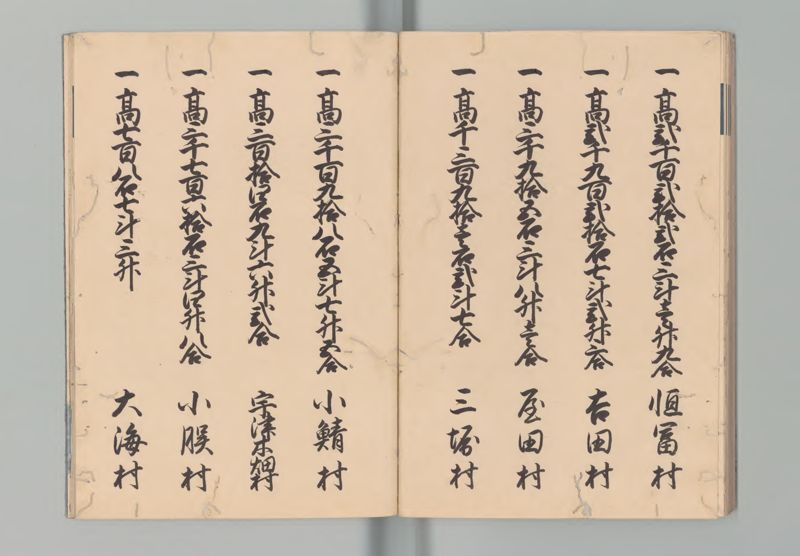 一高弐千百弐拾弐石三斗壱升九合 恒富村
一高弐千九百弐拾石七斗弐升六合 吉田村
一高三千九拾五石三斗八升壱合 屋田村
一高千三百九拾壱石弐斗七合 三堀村
一高三千百九拾八石五斗七升五合 小鯖村
一高三百拾四石九斗六升弐合 宇津木畑村
一高三千七百六拾石三斗四升八合 小俣村
一高七百八石七斗三升 大海村